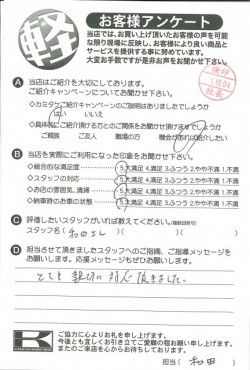 軽
お客様アンケート
当店では、お買い上げ頂いたお客様の声を可能
な限り現場に反映し、お客様により良い商品と
サービスを提供する事に努めております。
大変お手数ですが是非お声をお聞かせ下さい。
検印
社長
A 当店はご紹介を大切にしてあります。
ご紹介キャンペーンについてお聞かせ下さい。
◇カミタケご紹介キャンペーンのご説明はありましたでしょうか
はい いいえ
◇具体的にご紹介頂ける方とのご関係をお聞かせ頂けますでしょうか
ご家族 ご親友 職場の方 機会があれば紹介したい
B 当店を実際にご利用になった印象をお聞かせ下さい。
◇総合的な満足度 5.大満足 4.満足 3.ふつう 2.やや不満 1.不満
◇スタッフの対応 5.大満足 4.満足 3.ふつう 2.やや不満 1.不満
◇お店の雰囲気、清掃 5.大満足 4.満足 3.ふつう 2.やや不満 1.不満
◇納車時のお車の状態 5.大満足 4.満足 3.ふつう 2.やや不満 1.不満
C 評価したいスタッフがいれば教えてください。(複数回答可)
スタッフ名( 和田さん )
D 担当させて頂きましたスタッフへのご指摘、ご指導メッセージを
お願いします。応援メッセージもぜひお願いします。
とても親切に対応頂きました。
K
ご協力に心よりお礼を申し上げます。
今後とも宜しくお引き立てご愛顧の程お願い申し上げます。
またのご来店を心からお待ちしております。
担当( 和田 )